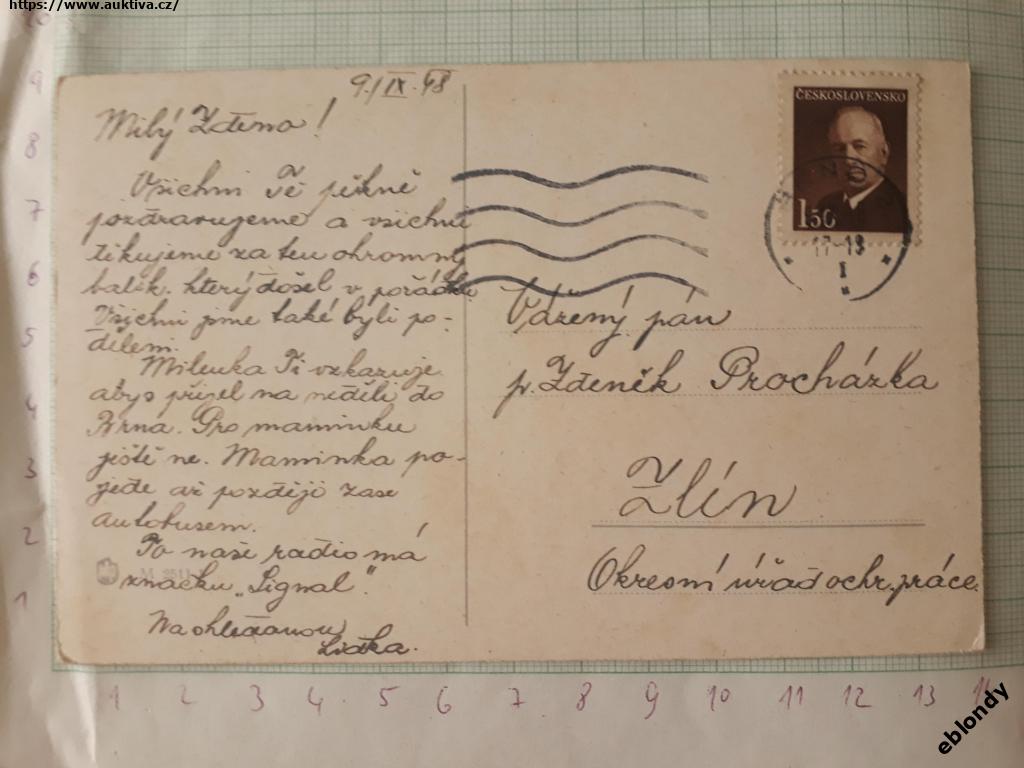 https://www.auktiva.cz/
9./IX. 48
Milý Zdeno!
Všichni Tě pěkně
pozdravujeme a všichni
děkujeme za ten ohromný
balík, který došel v pořádku
Všichni jsme také byli po-
děleni.
Milenka Ti vzkazuje
abys přijel na neděli do
Brna. Pro maminku
ještě ne. Maminka po-
jede až později zase
autobusem.
To naše radio má
značku „Signal".
Na shledanou
Lidka.
M 2511
ČESKOSLOVENSKO
1.50
17-18
1
Vážený pán
p. Zdeněk Procházka
Zlín
Okresní úřad ochr. práce
10
9
8
7
6
5
4
3
2
1
1 2 3 4 5 6 7 8 9 10 11 12 13 14
eblondy